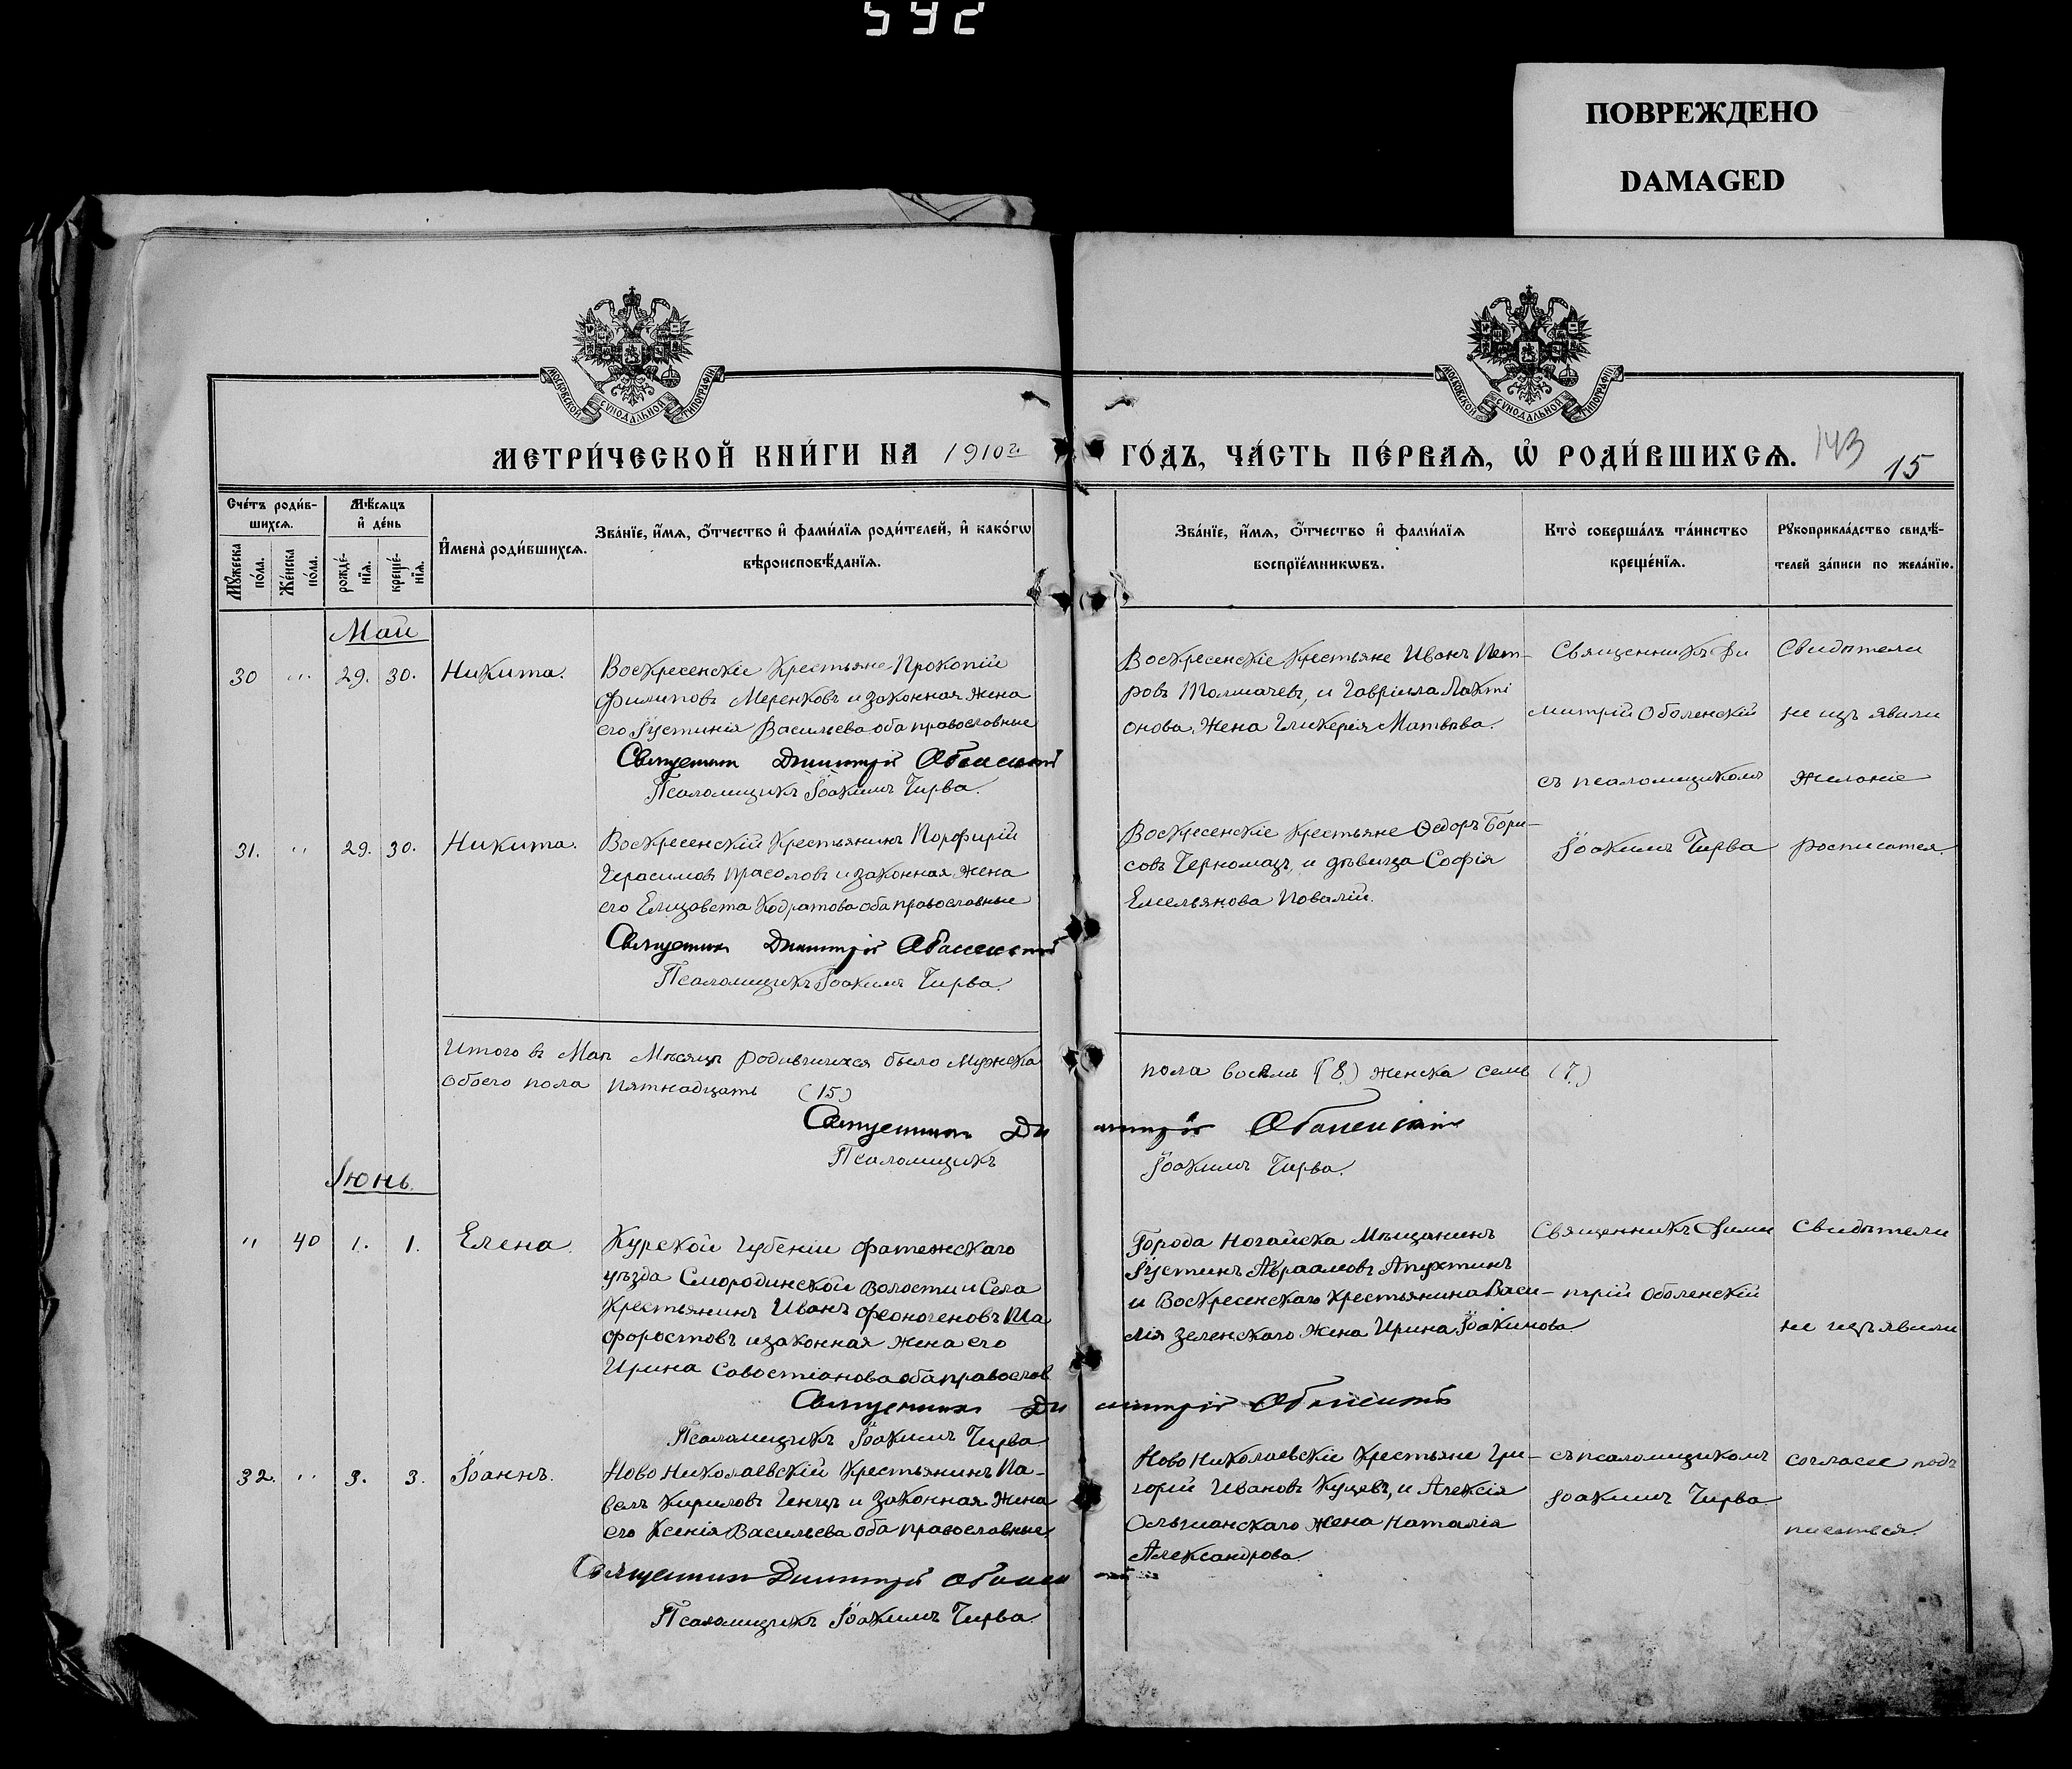 592
ПОВРЕЖДЕНО
DAMAGED
МОСКОВСКОЙ СѴНОДАЛЬНОЙ ТИПОГРАФІИ
МОСКОВСКОЙ СѴНОДАЛЬНОЙ ТИПОГРАФІИ
МЕТРИ́ЧЕСКОЙ КНИ́ГИ НА 1910 г. ГО́ДЪ, ЧА́СТЬ ПЕ́РВАѦ, Ѡ҆ РОДИ́ВШИХСѦ.
143
15
Сче́тъ роди́в-
шихсѧ.
Мꙋ́жеска
по́ла.
Же́нска
по́ла.
Мѣ́сѧцъ
и҆ де́нь
рожде́-
нїѧ.
креще́-
нїѧ.
И҆мена̀ роди́вшихсѧ.
Зва́нїе, и҆́мѧ, ѻ҆́тчество и҆ фами́лїѧ роди́телей, и҆ како́гѡ
вѣроисповѣ́данїѧ.
Зва́нїе, и҆́мѧ, ѻ҆́тчество и҆ фами́лїѧ
воспрїе́мникѡвъ.
Кто̀ соверша́лъ та́инство
креще́нїѧ.
Рꙋкоприкла́дство свидѣ́-
телей за́писи по жела́нїю.
Май
30 " 29. 30. Никита.
Воскресенскіе Крестьяне Прокопій
Филиповъ Меренковъ и законная жена
его Іустинія Васильева оба православные
Священникъ Димитрій Оболенскій
Псаломщикъ Іоакимъ Чирва.
Воскресенскіе Крестьяне Иванъ Пет-
ровъ Толмачевъ, и Гавріила Лакті
онова, Жена Гликерія Матвѣева.
Священникъ Ди
митрій Оболенскій
съ псаломщикомъ
Іоакимъ Чирва
Свидѣтели
не изъ явили
желаніе
росписатся.
31. " 29. 30. Никита.
Воскресенскій Крестьянинъ Порфирій
Герасимовъ Прасоловъ и законная жена
его Елизавета Кодратова оба православные
Священникъ Димитрій Оболенскій
Псаломщикъ Іоакимъ Чирва.
Воскресенскіе Крестьяне Ѳедоръ Бори-
совъ Черномазъ, и дѣвица Софія
Емельянова Повалій.
Итого въ Маѣ Мѣсяцѣ родившихся было Мужеска пола восемъ (8.) женска семь (7.)
Обоего пола пятнадцать (15)
Священникъ Димитрій Оболенскій
Псаломщикъ Іоакимъ Чирва.
Іюнь.
" 40 1. 1. Елена.
Курской Губеніи Фатежскаго
уѣзда Смородинской волости и Села
Крестьянинъ Иванъ Феоногеновъ Ша
форостовъ и законная жена его
Ирина Савостіанова оба православ
Священникъ Димитрій Оболенскій
Псаломщикъ Іоакимъ Чирва
Города Ногайска Мѣщанинъ
Іустинъ Авраамовъ Апухтинъ
и Воскресенскаго крестьянина Васи-
лія Зеленскаго жена Ирина Іоакимова.
Священникъ Дими
трій Оболенскій
съ псаломщикомъ
Іоакимъ Чирва
Свидѣтели
не изъявили
согласіе подъ
писаться
32. " 3. 3. Іоаннъ.
Ново Николаевскій Крестьянинъ Па-
велъ Кириловъ Генцъ и законная жена
его Ксенія Васильева оба православные
Священникъ Димитрій Оболенскій
Псаломщикъ Іоакимъ Чирва.
Ново Николаевскіе Крестьяне Гри-
горій Ивановъ Куцевъ, и Алексія
Ольшанскаго жена Наталія
Александрова.